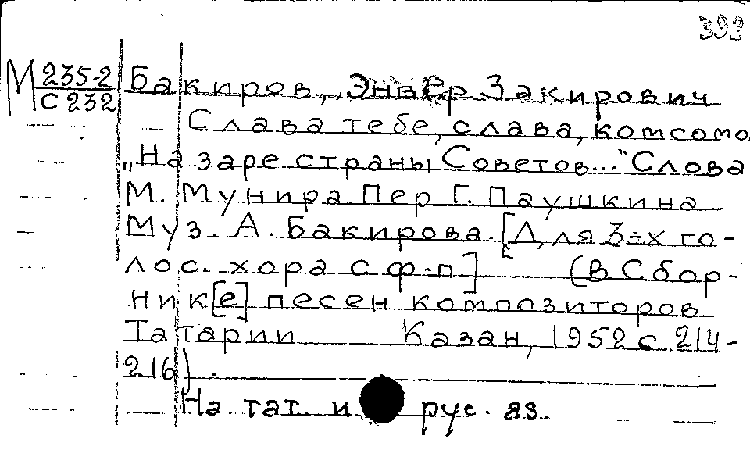 393
М 235-2
С 232
Бакиров, Энвер Закирович
Слава тебе, слава, комсомо
„На заре страны Советов..." Слова
М. Мунира Пер Г. Паушкина
Муз. А. Бакирова. [Для 3-х го-
лос. хора с ф-п.] (В Сбор-
ник[е] песен композиторов
Татарии Казан, 1952 с 214-
216).
На тат. и рус. яз.